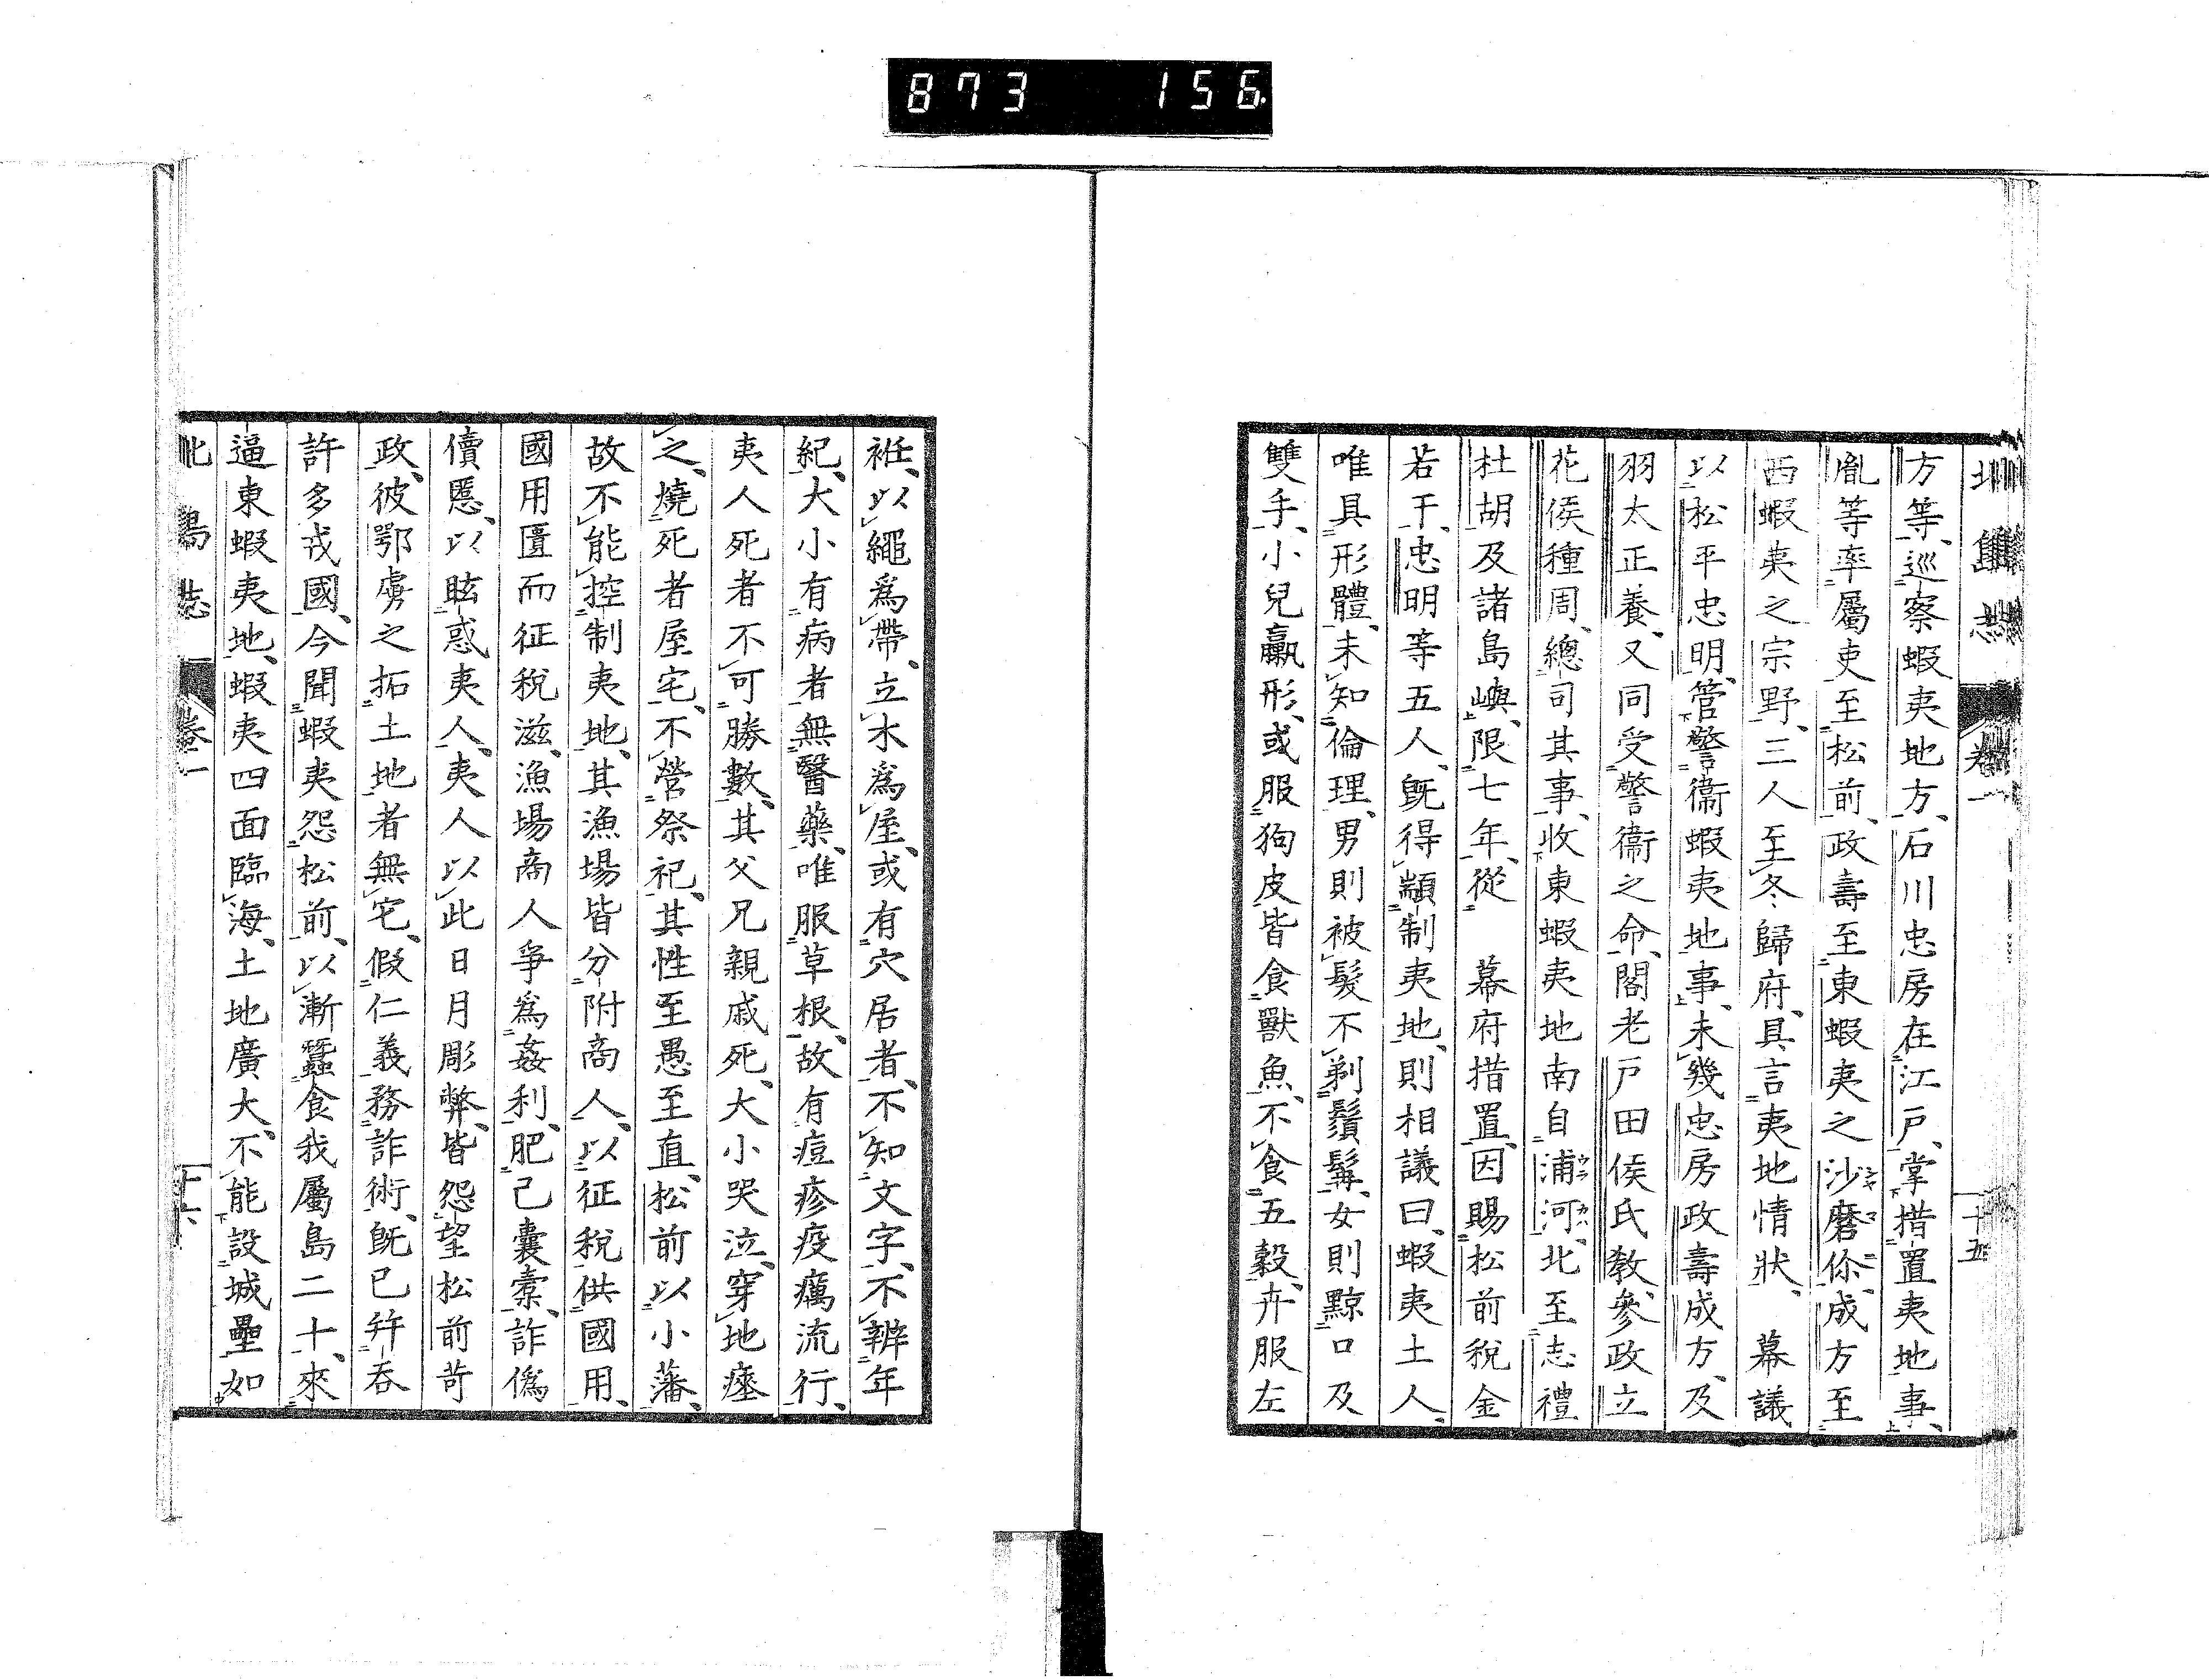 873 156
北島志 卷一 十五
方等、巡察蝦夷地方、石川忠房在江戸、掌措置夷地事、
胤等率屬吏至松前、政壽至東蝦夷之沙磨你、成方至
西蝦夷之宗野、三人至冬歸府、具言夷地情狀、 幕議
以松平忠明、管警衞蝦夷地事、未幾忠房政壽成方、及
羽太正養、又同受警衞之命、閣老戸田侯氏教、參政立
花侯種周、總司其事、收東蝦夷地南自浦河、北至志禮
杜胡及諸島嶼、限七年、從 幕府措置、因賜松前税金
若干、忠明等五人、既得顓制夷地、則相議曰、蝦夷土人、
唯具形體、未知倫理、男則被髮不剃鬚髯、女則黥口及
雙手、小兒臝形、或服狗皮皆食獸魚、不食五穀、卉服左
袵、以繩爲帶、立木爲屋、或有穴居者、不知文字、不辨年
紀、大小有病者無醫藥、唯服草根、故有痘疹疫癘流行、
夷人死者不可勝數、其父兄親戚死、大小哭泣、穿地瘞
之、燒死者屋宅、不營祭祀、其性至愚至直、松前以小藩、
故不能控制夷地、其漁場皆分附商人、以征税供國用、
國用匱而征税滋、漁場商人爭爲姦利、肥己囊橐、詐僞
儥慝、以眩惑夷人、夷人以此日月彫弊、皆怨望松前苛
政、彼鄂虜之拓土地者無宅、假仁義務詐術、既已幷呑
許多戎國、今聞蝦夷怨松前、以漸蠶食我屬島二十、來
逼東蝦夷地、蝦夷四面臨海、土地廣大、不能設城壘如
北島志 卷一 十六